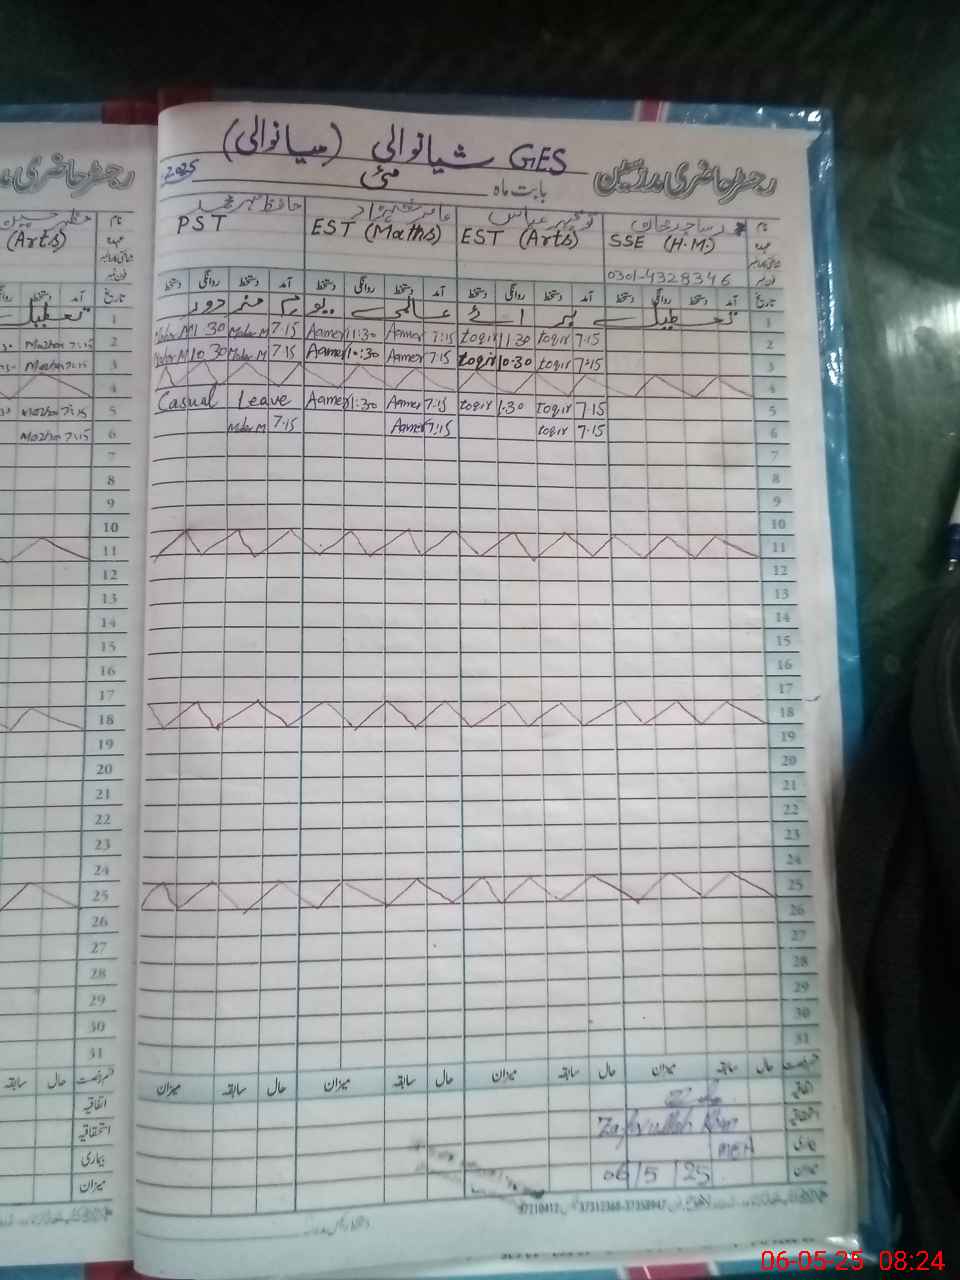 رجسٹر حاضری مدرسین
GES شیانوالی (میانوالی)
بابت ماہ مئی 2025
نام ساجد خان عامر شہزاد حافظ مہر محمد
عہدہ SSE (H.M.) EST (Arts) EST (Maths) PST
(Arts)
فون نمبر 0301-4328346
تاریخ آمد دستخط روانگی دستخط آمد دستخط روانگی دستخط آمد دستخط روانگی دستخط آمد دستخط روانگی دستخط
1 تعطیل برائے عالمی یوم مزدور
2 7:15 Toqir 1:30 Toqir 7:15 Aamer 11:30 Aamer 7:15 Maher M 11 30 Maher M
3 7:15 Toqir 10:30 Toqir 7:15 Aamer 10:30 Aamer 7:15 Maher M 10 30 Maher M
4
5 7:15 Toqir 1:30 Toqir 7:15 Aamer 1:30 Aamer Casual Leave
6 7:15 Toqir 7:15 Aamer 7:15 Maher M
7
8
9
10
11
12
13
14
15
16
17
18
19
20
21
22
23
24
25
26
27
28
29
30
31
قسم رخصت حال سابقہ میزان حال سابقہ میزان حال سابقہ میزان حال سابقہ میزان
اتفاقیہ
استحقاقیہ Zafarullah Khan
بیماری MEA
میزان 06/5/25
رجسٹر حاضری
Mazhar 7:15
Mazhar 7:15
Mazhar 7:15
Mazhar 7:15
اتفاقیہ
استحقاقیہ
بیماری
میزان
06-05-25 08:24